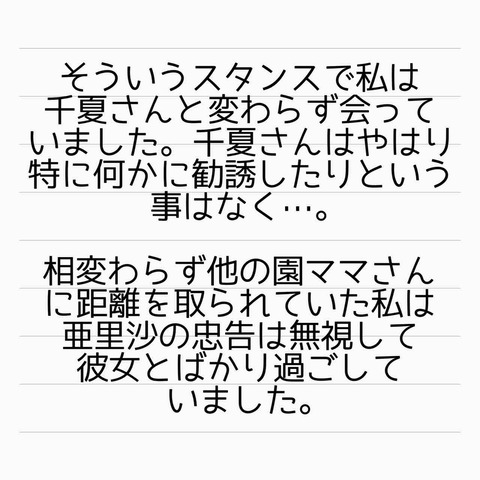 そういうスタンスで私は
千夏さんと変わらず会って
いました。千夏さんはやはり
特に何かに勧誘したりという
事はなく…。
相変わらず他の園ママさん
に距離を取られていた私は
亜里沙の忠告は無視して
彼女とばかり過ごして
いました。